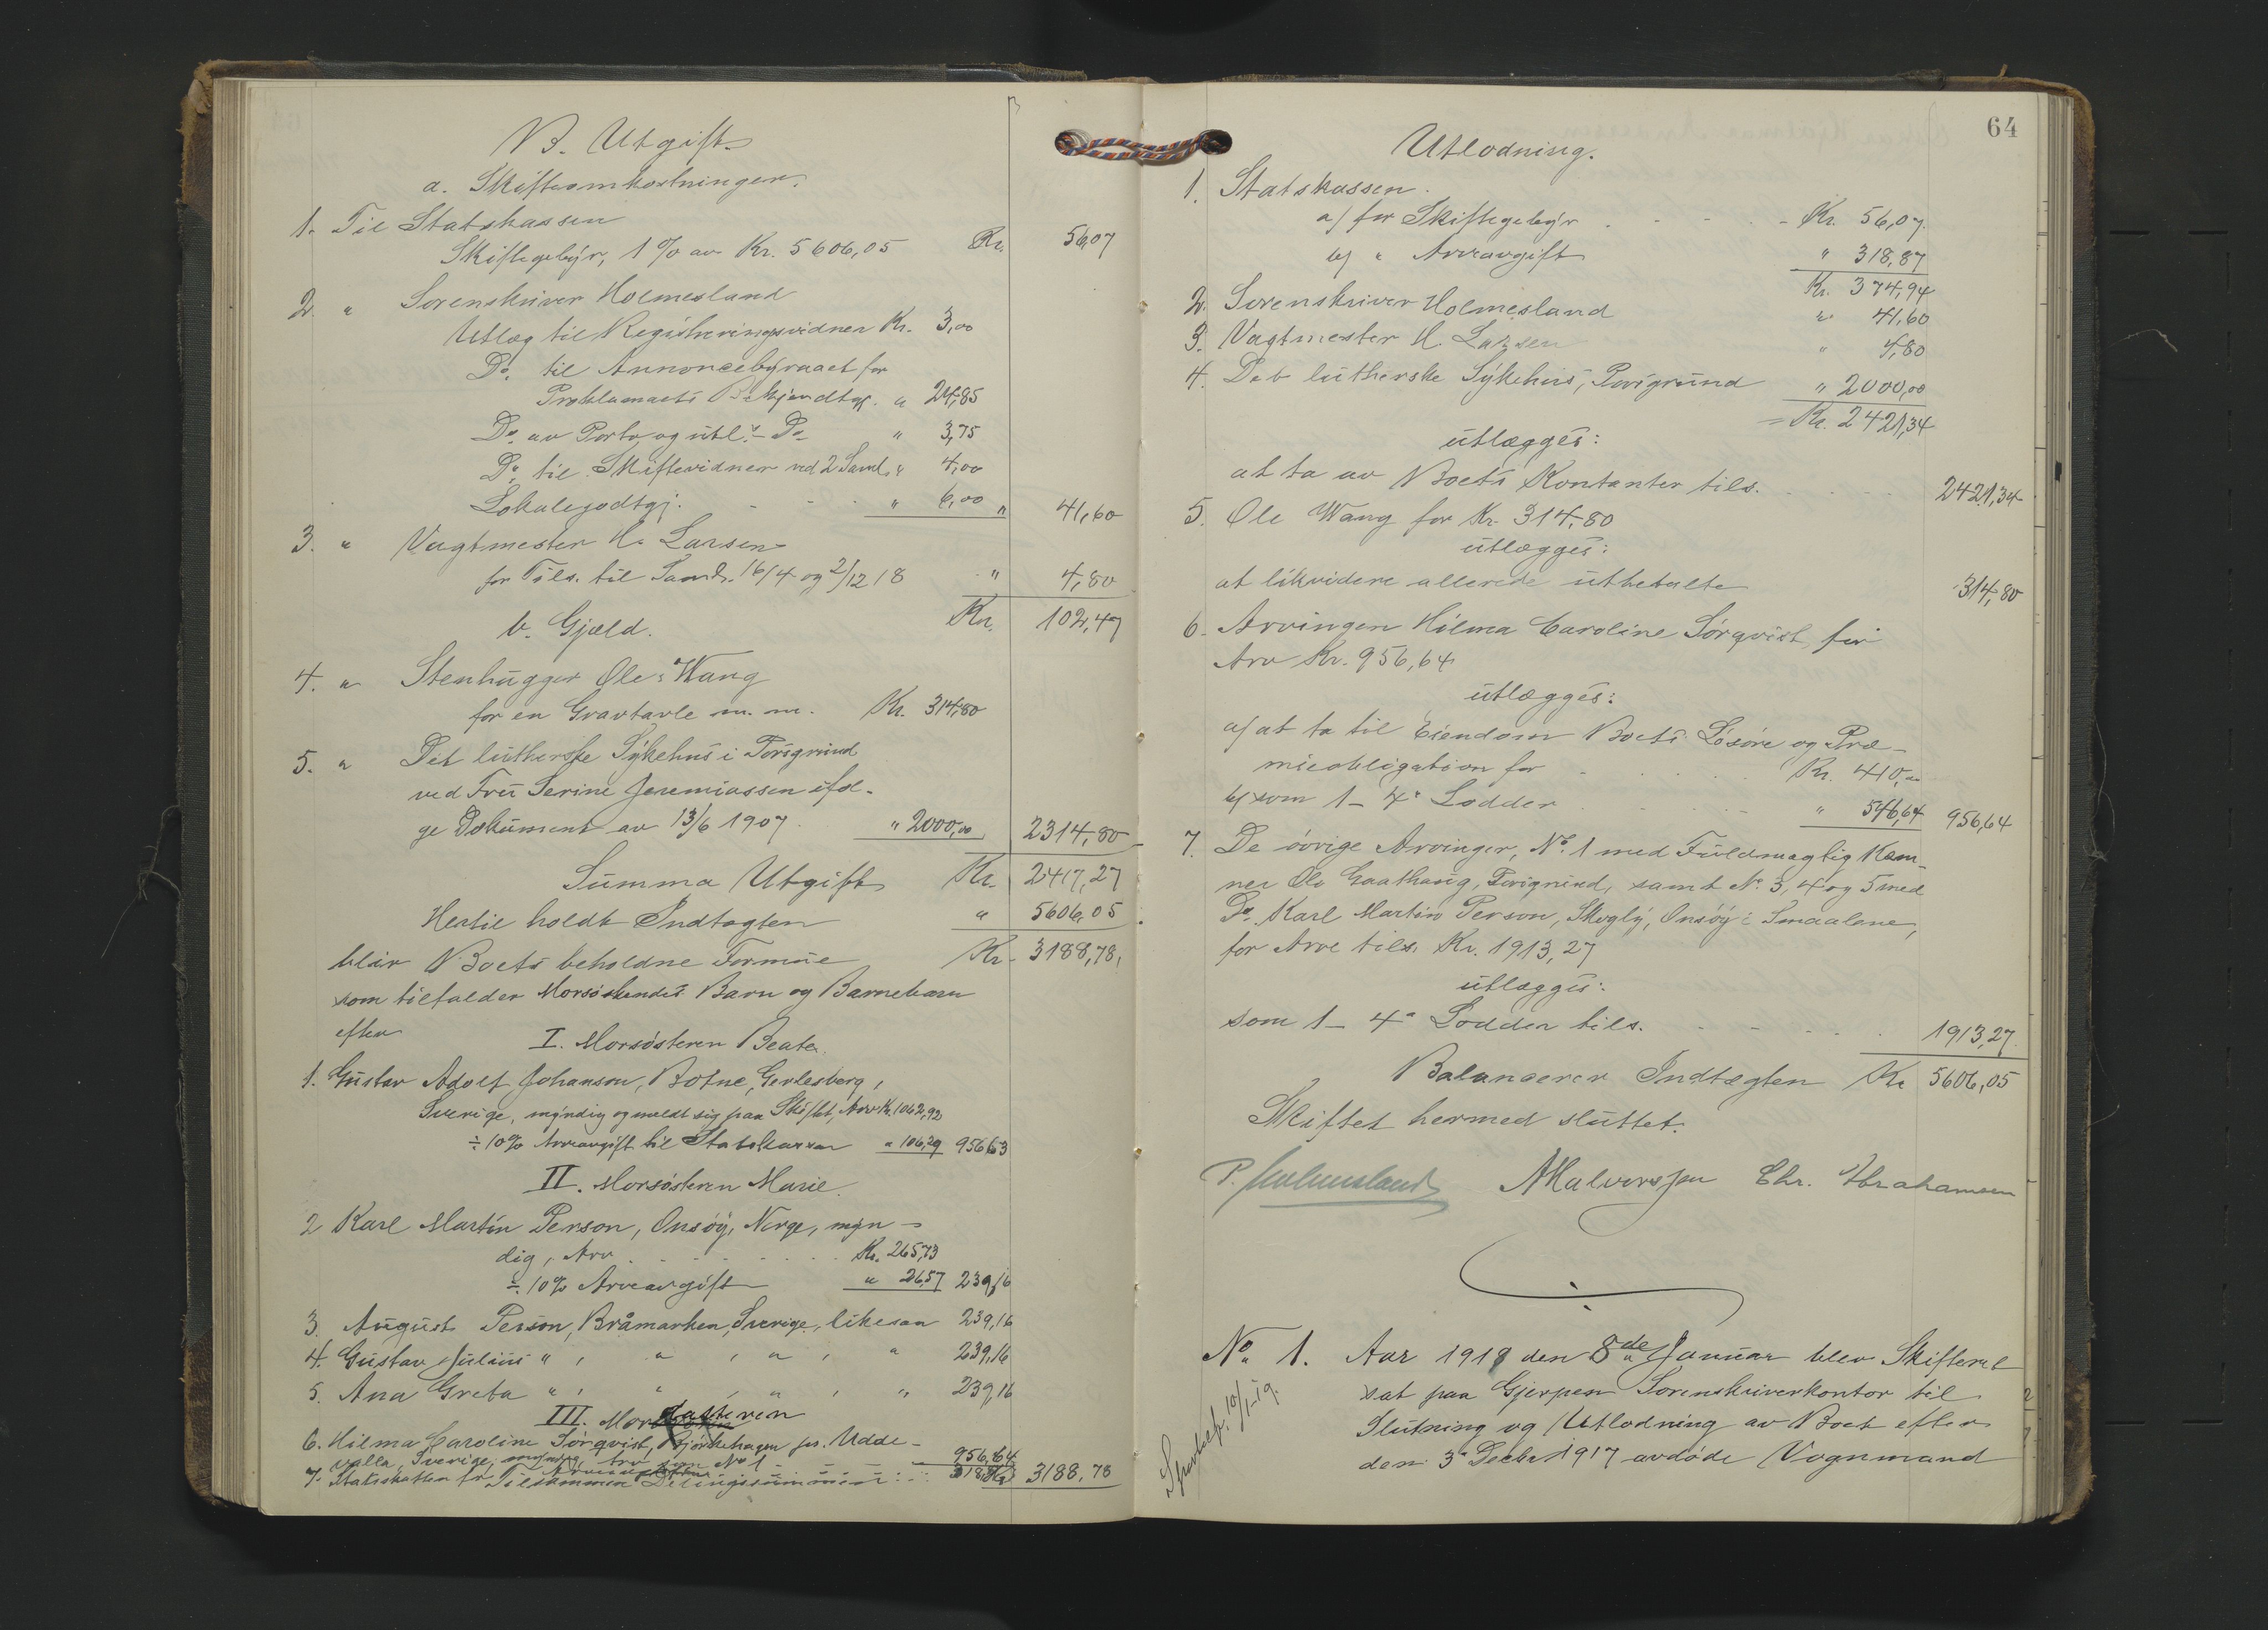 B. Utgift.
a. Skifteomkostninger.
1. Til Statskassen
Skiftegebyr, 1 % av Kr. 5606,05 Kr. 56,07
2. " Sorenskriver Holmesland
Utlæg til Registreringsvidner Kr. 3,00
Do. til Annoncebyraaet for
Proklamaets Bekjendtgj. " 24,85
Do. av Porto og utl. Do " 3,75
Do. til Skiftevidner ved 2 Saml. " 4,00
Lokalegodtgj. " 6,00 " 41,60
3. " Vagtmester H. Larsen
for Tils. til Saml. 16/4 og 2/12 18 " 4,80
Kr. 102,47
b. Gjæld.
4. " Stenhugger Ole Wang
for en Gravtavle m. m. Kr. 314,80
5. " Det lutherske Sykehus i Porsgrund
ved Fru Serine Jeremiassen iføl-
ge Dokument av 13/6 1907. " 2000,00 2314,80
Summa Utgift Kr. 2417,27
Hertil holdt Indtægten " 5606,05
blir Boets beholdne Formue Kr. 3188,78,
som tilfalder Morsøskendes Barn og Barnebarn
efter
I. Morsøsteren Beate.
1. Gustav Adolf Johanson, Botne, Gerlesberg,
Sverige, myndig og meldt sig paa Skiftet, Arv Kr. 1062,92
÷ 10% Arveavgift til Statskassen " 106,29 956,63
II. Morsøsteren Marie.
2 Karl Martin Person, Onsøy, Norge, myn-
dig, Arv Kr. 265,73
÷ 10% Arveavgift " 26,57 239,16
3. August Person, Bråmarken, Sverige, likesaa 239,16
4. Gustav Julius " , " , " , " 239,16
5. Ana Greta " , " , " , " 239,16
III. Mor
6. Hilma Caroline Sörqvist, Björkehagen pr. Udde-
valla, Sverige, myndig, Arv som No 1 956,64
7. Statskassen for Arveavgiften 318,87
Tilsammen Delingssummen Kr. 3188,78
64
Utlodning.
1. Statskassen.
a/ for Skiftegebyr Kr. 56,07.
b/ " Arveavgift " 318,87
Kr. 374,94
2. Sorenskriver Holmesland " 41,60
3. Vagtmester H. Larsen " 4,80
4. Det lutherske Sykehus, Porsgrund " 2000,00
= Kr. 2421,34
utlægges:
at ta av Boets Kontanter tils. 2421,34
5. Ole Wang for Kr. 314,80
utlægges:
at likvidere allerede utbetalte 314,80
6. Arvingen Hilma Caroline Sörqvist, for
Arv Kr. 956,64
utlægges:
a/ at ta til Eiendom Boets Løsøre og Præ-
mieobligation for Kr. 410,00
b/ som 1 - 4 Lodder " 546,64 956,64
7. De øvrige Arvinger, No. 1 med Fuldmægtig Kæm-
ner Ole Gaathaug, Porsgrund, samt No. 3, 4 og 5 med
Do. Karl Martin Person, Skogly, Onsøy i Smaalene,
for Arv tils. Kr. 1913,27
utlægges:
som 1 - 4 Lodder tils. 1913,27.
Balancerer Indtægten Kr. 5606,05
Skiftet hermed sluttet.
P. Holmesland AHalvorsen Chr. Abrahamsen
No. 1. Aar 1919 den 8de Januar blev Skifteret
sat paa Gjerpen Sorenskriverkontor til
Slutning og Utlodning av Boet efter
den 3 Decbr 1917 avdøde Vognmand
10/1-19.